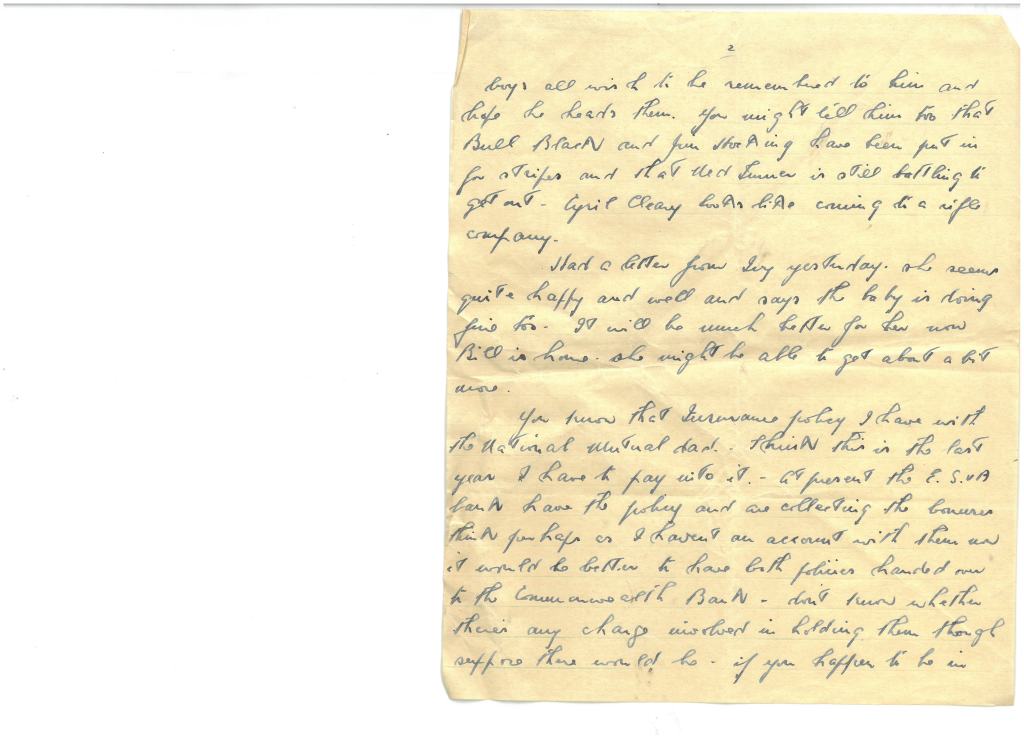 2
boys all wish to be remembered to him and
hope he heads them. You might tell him too that
Bull Black and Jim Hocking have been put in
for stripes and that Ned Turner is still battling to
get out - Cyril Cleary looks like coming to a rifle
company.
Had a letter from Ivy yesterday. she seems
quite happy and well and says the baby is doing
fine too. It will be much better for her now
Bill is home. she might be able to get about a bit
more.
You know that Insurance policy I have with
the National Mutual dad. - think this is the last
year I have to pay into it. - at present the E. S. & A
bank have the policy and are collecting the bonuses
think perhaps as I havent an account with them now
it would be better to have both policies handed over
to the Commonwealth Bank - don't know whether
theres any charge involved in holding them though
suppose there would be - if you happen to be in